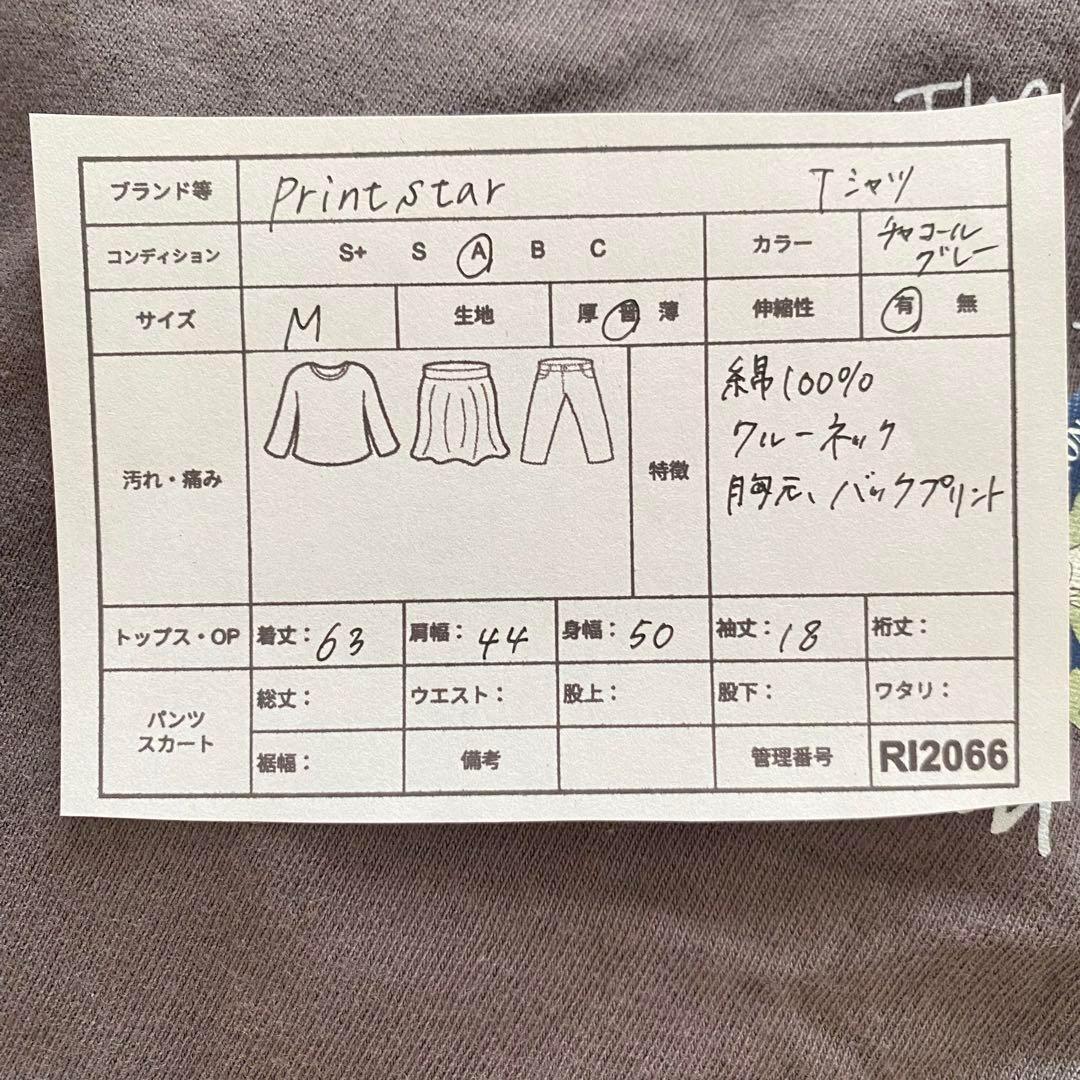 ブランド等 Printstar Tシャツ
コンディション S+ S A B C カラー チャコール
グレー
サイズ M 生地 厚 普 薄 伸縮性 有 無
汚れ・痛み 特徴 綿100%
クルーネック
胸元、バックプリント
トップス・OP 着丈：63 肩幅：44 身幅：50 袖丈：18 裄丈：
パンツ
スカート
総丈： ウエスト： 股上： 股下： ワタリ：
裾幅： 備考 管理番号 RI2066